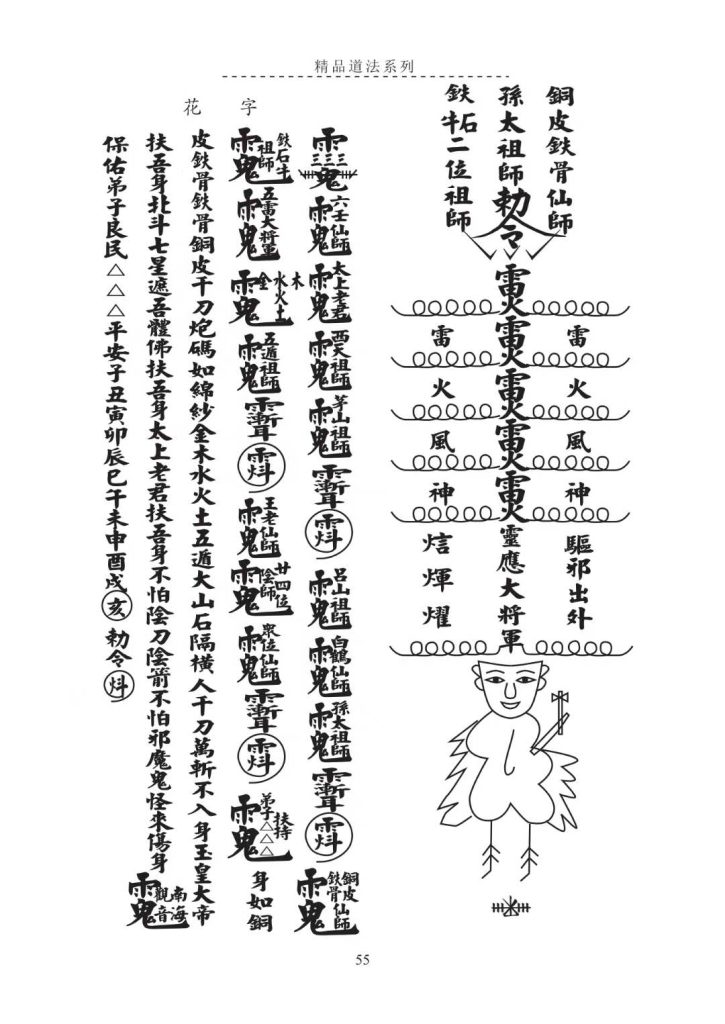 精品道法系列
銅皮鉄骨仙師
孫太祖師勅令
鉄石牛二位祖師
雷火雷火雷火雷火雷火靈應大將軍
雷火風神
驅邪出外
雷火風神
煇燿
花字
六壬仙師 太上老君 西天祖師 茅山祖師 呂山祖師 白鶴仙師 孫太祖師 銅皮鉄骨仙師
鉄石牛祖師 五雷大將軍 金木水火土 五遁祖師 王老仙師 廿四位陰師 眾位仙師 弟子△△△扶持 身如銅
皮鉄骨鉄骨銅皮千刀炮碼如綿紗金木水火土五遁大山石隔橫人千刀萬斬不入身玉皇大帝
扶吾身北斗七星遮吾體佛扶吾身太上老君扶吾身不怕陰刀陰箭不怕邪魔鬼怪來傷身 南海觀音
保佑弟子良民△△△平安子丑寅卯辰巳午未申酉戌亥勅令
55